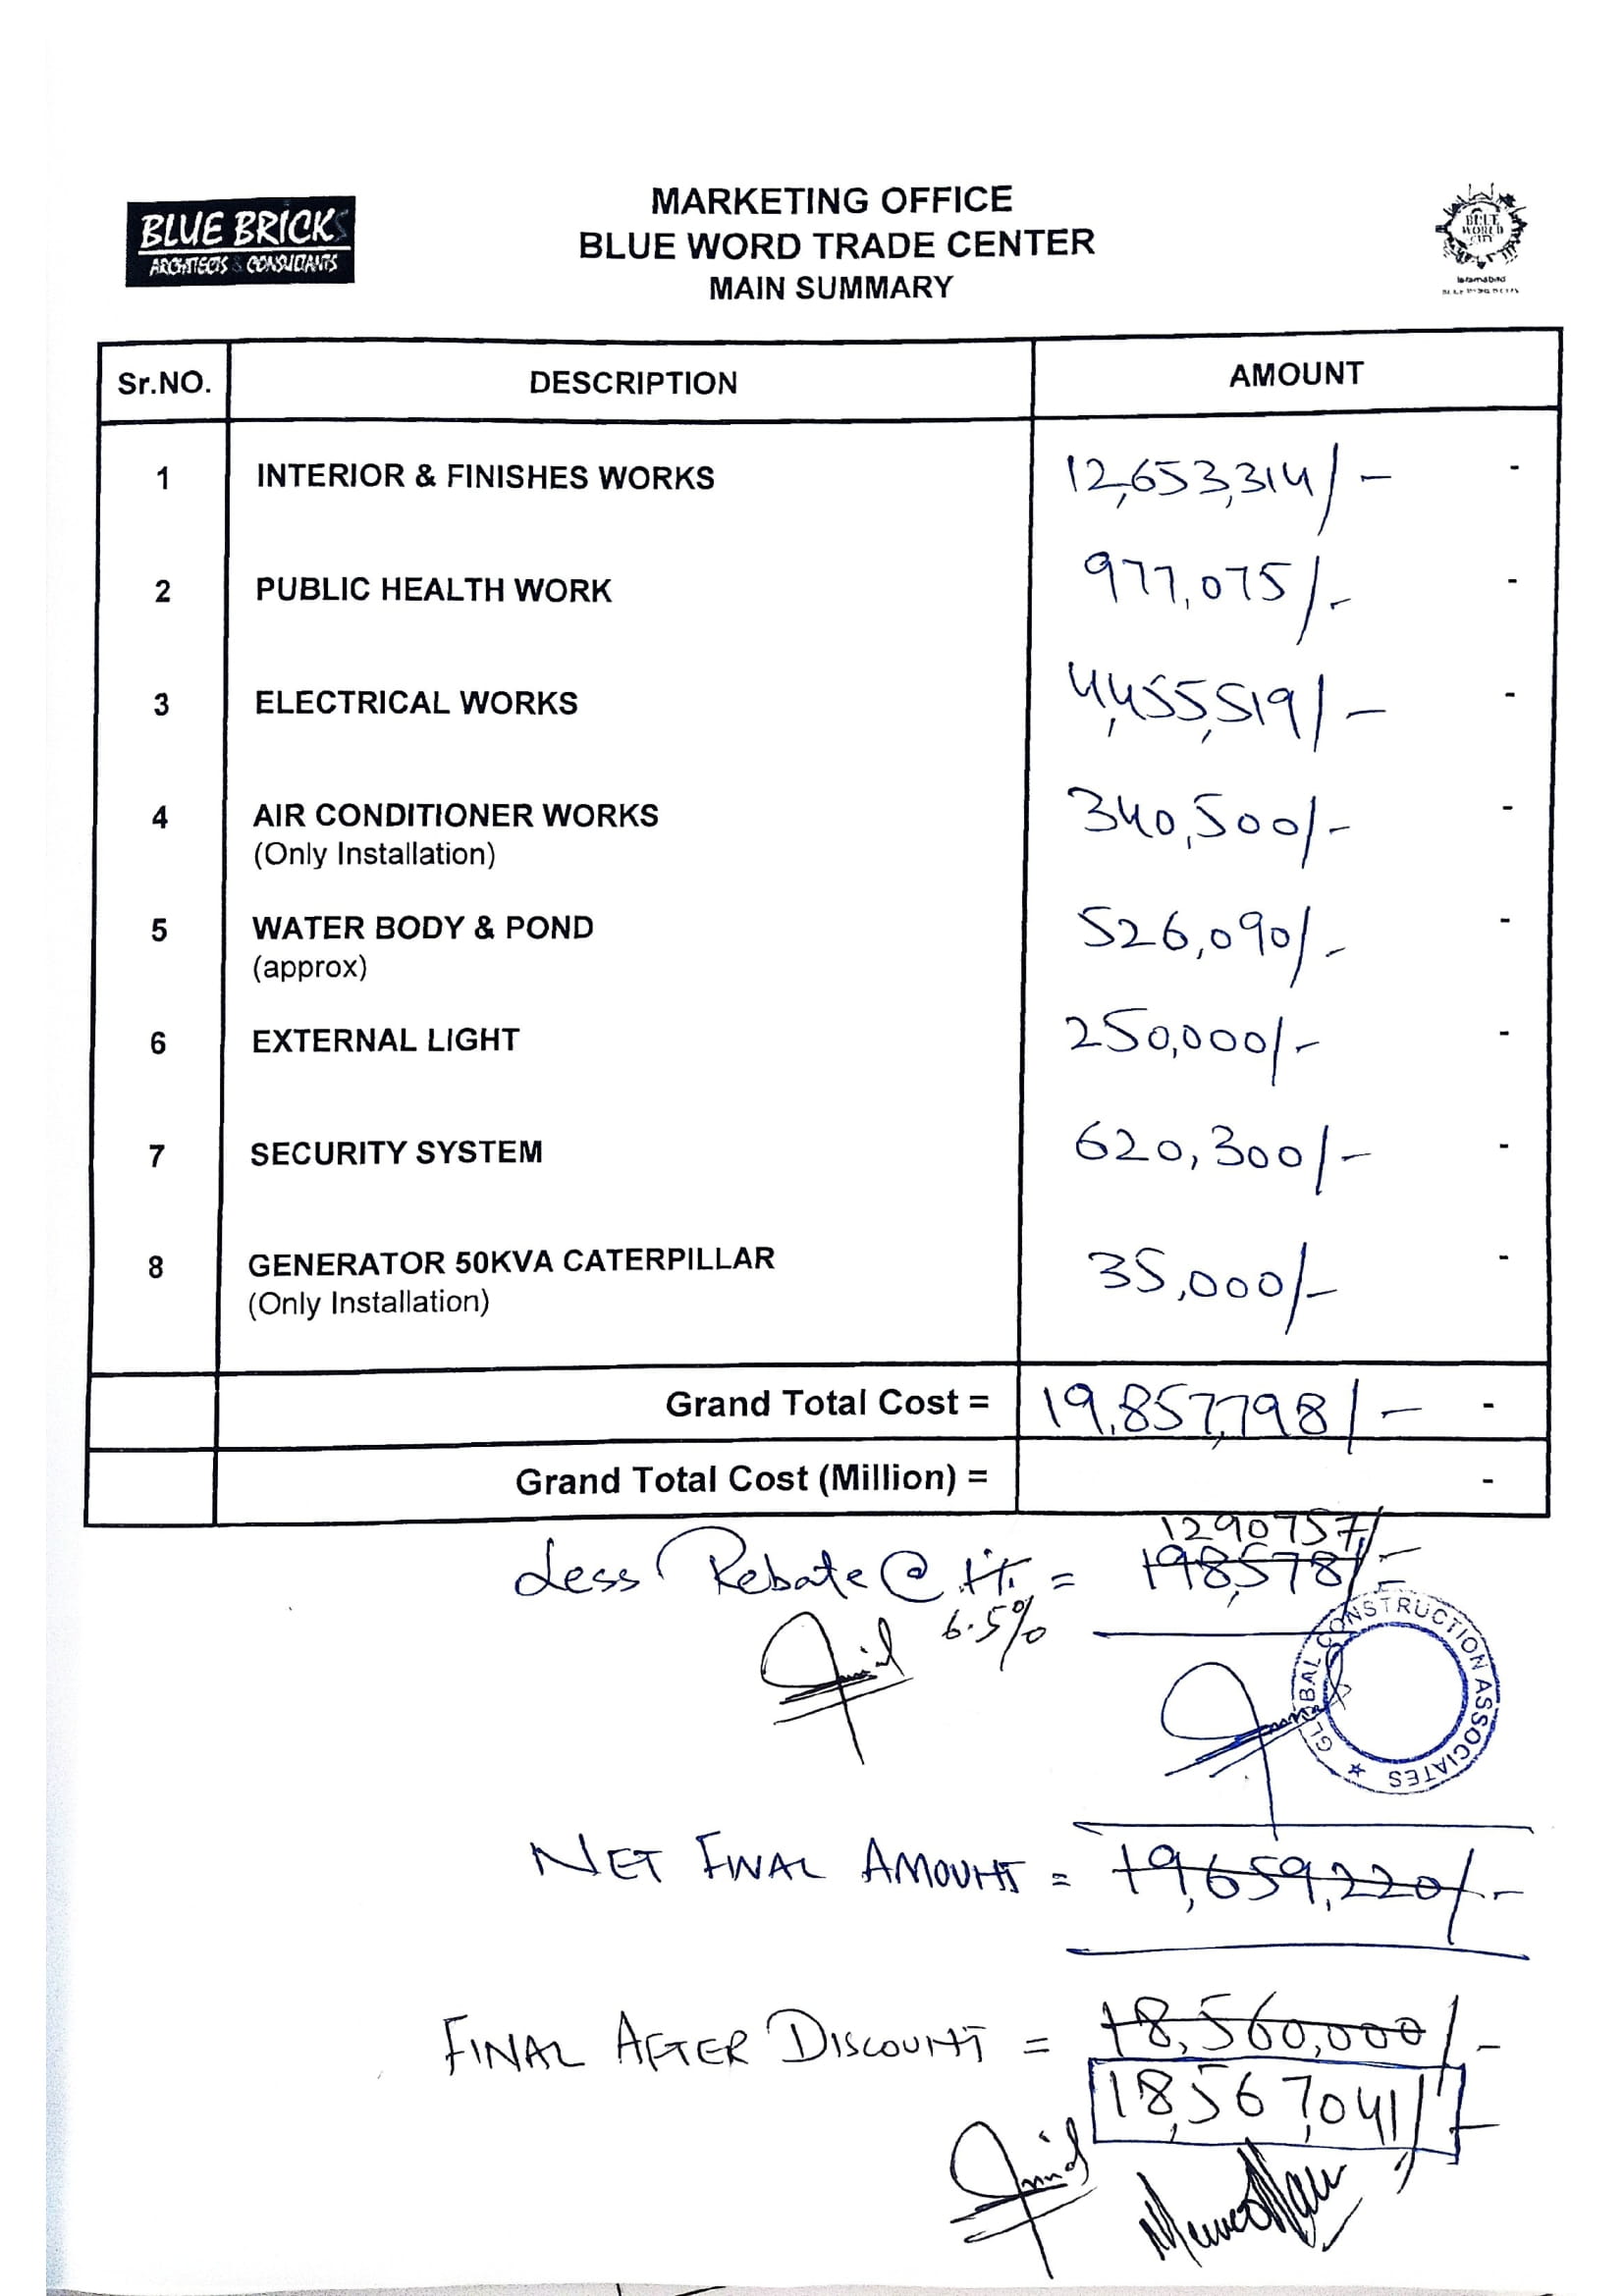 BLUE BRICKS
ARCHITECTS & CONSULTANTS
MARKETING OFFICE
BLUE WORD TRADE CENTER
MAIN SUMMARY
BLUE WORLD CITY
Islamabad
Sr.NO. DESCRIPTION AMOUNT
1 INTERIOR & FINISHES WORKS 12,653,314/- -
2 PUBLIC HEALTH WORK 977,075/- -
3 ELECTRICAL WORKS 4,455,519/- -
4 AIR CONDITIONER WORKS 340,500/- -
(Only Installation)
5 WATER BODY & POND 526,090/- -
(approx)
6 EXTERNAL LIGHT 250,000/- -
7 SECURITY SYSTEM 620,300/- -
8 GENERATOR 50KVA CATERPILLAR 35,000/- -
(Only Installation)
Grand Total Cost = 19,857,798/- -
Grand Total Cost (Million) = -
1290757/-
Less Rebate @ 1%. = 198,578/-
6.5%
GLOBAL CONSTRUCTION ASSOCIATES
NET FINAL AMOUNT = 19,659,220/-
FINAL AFTER DISCOUNT = 18,560,000/-
18,567,041/-